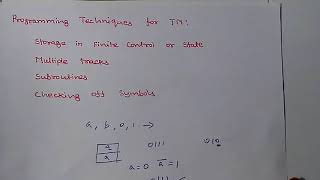 Programming Techniques for TM:
Storage in Finite Control or State
Multiple tracks
Subroutines
Checking off Symbols
a, b, 0, 1 →
a
a
0111
010
a=0 ā=1
0111